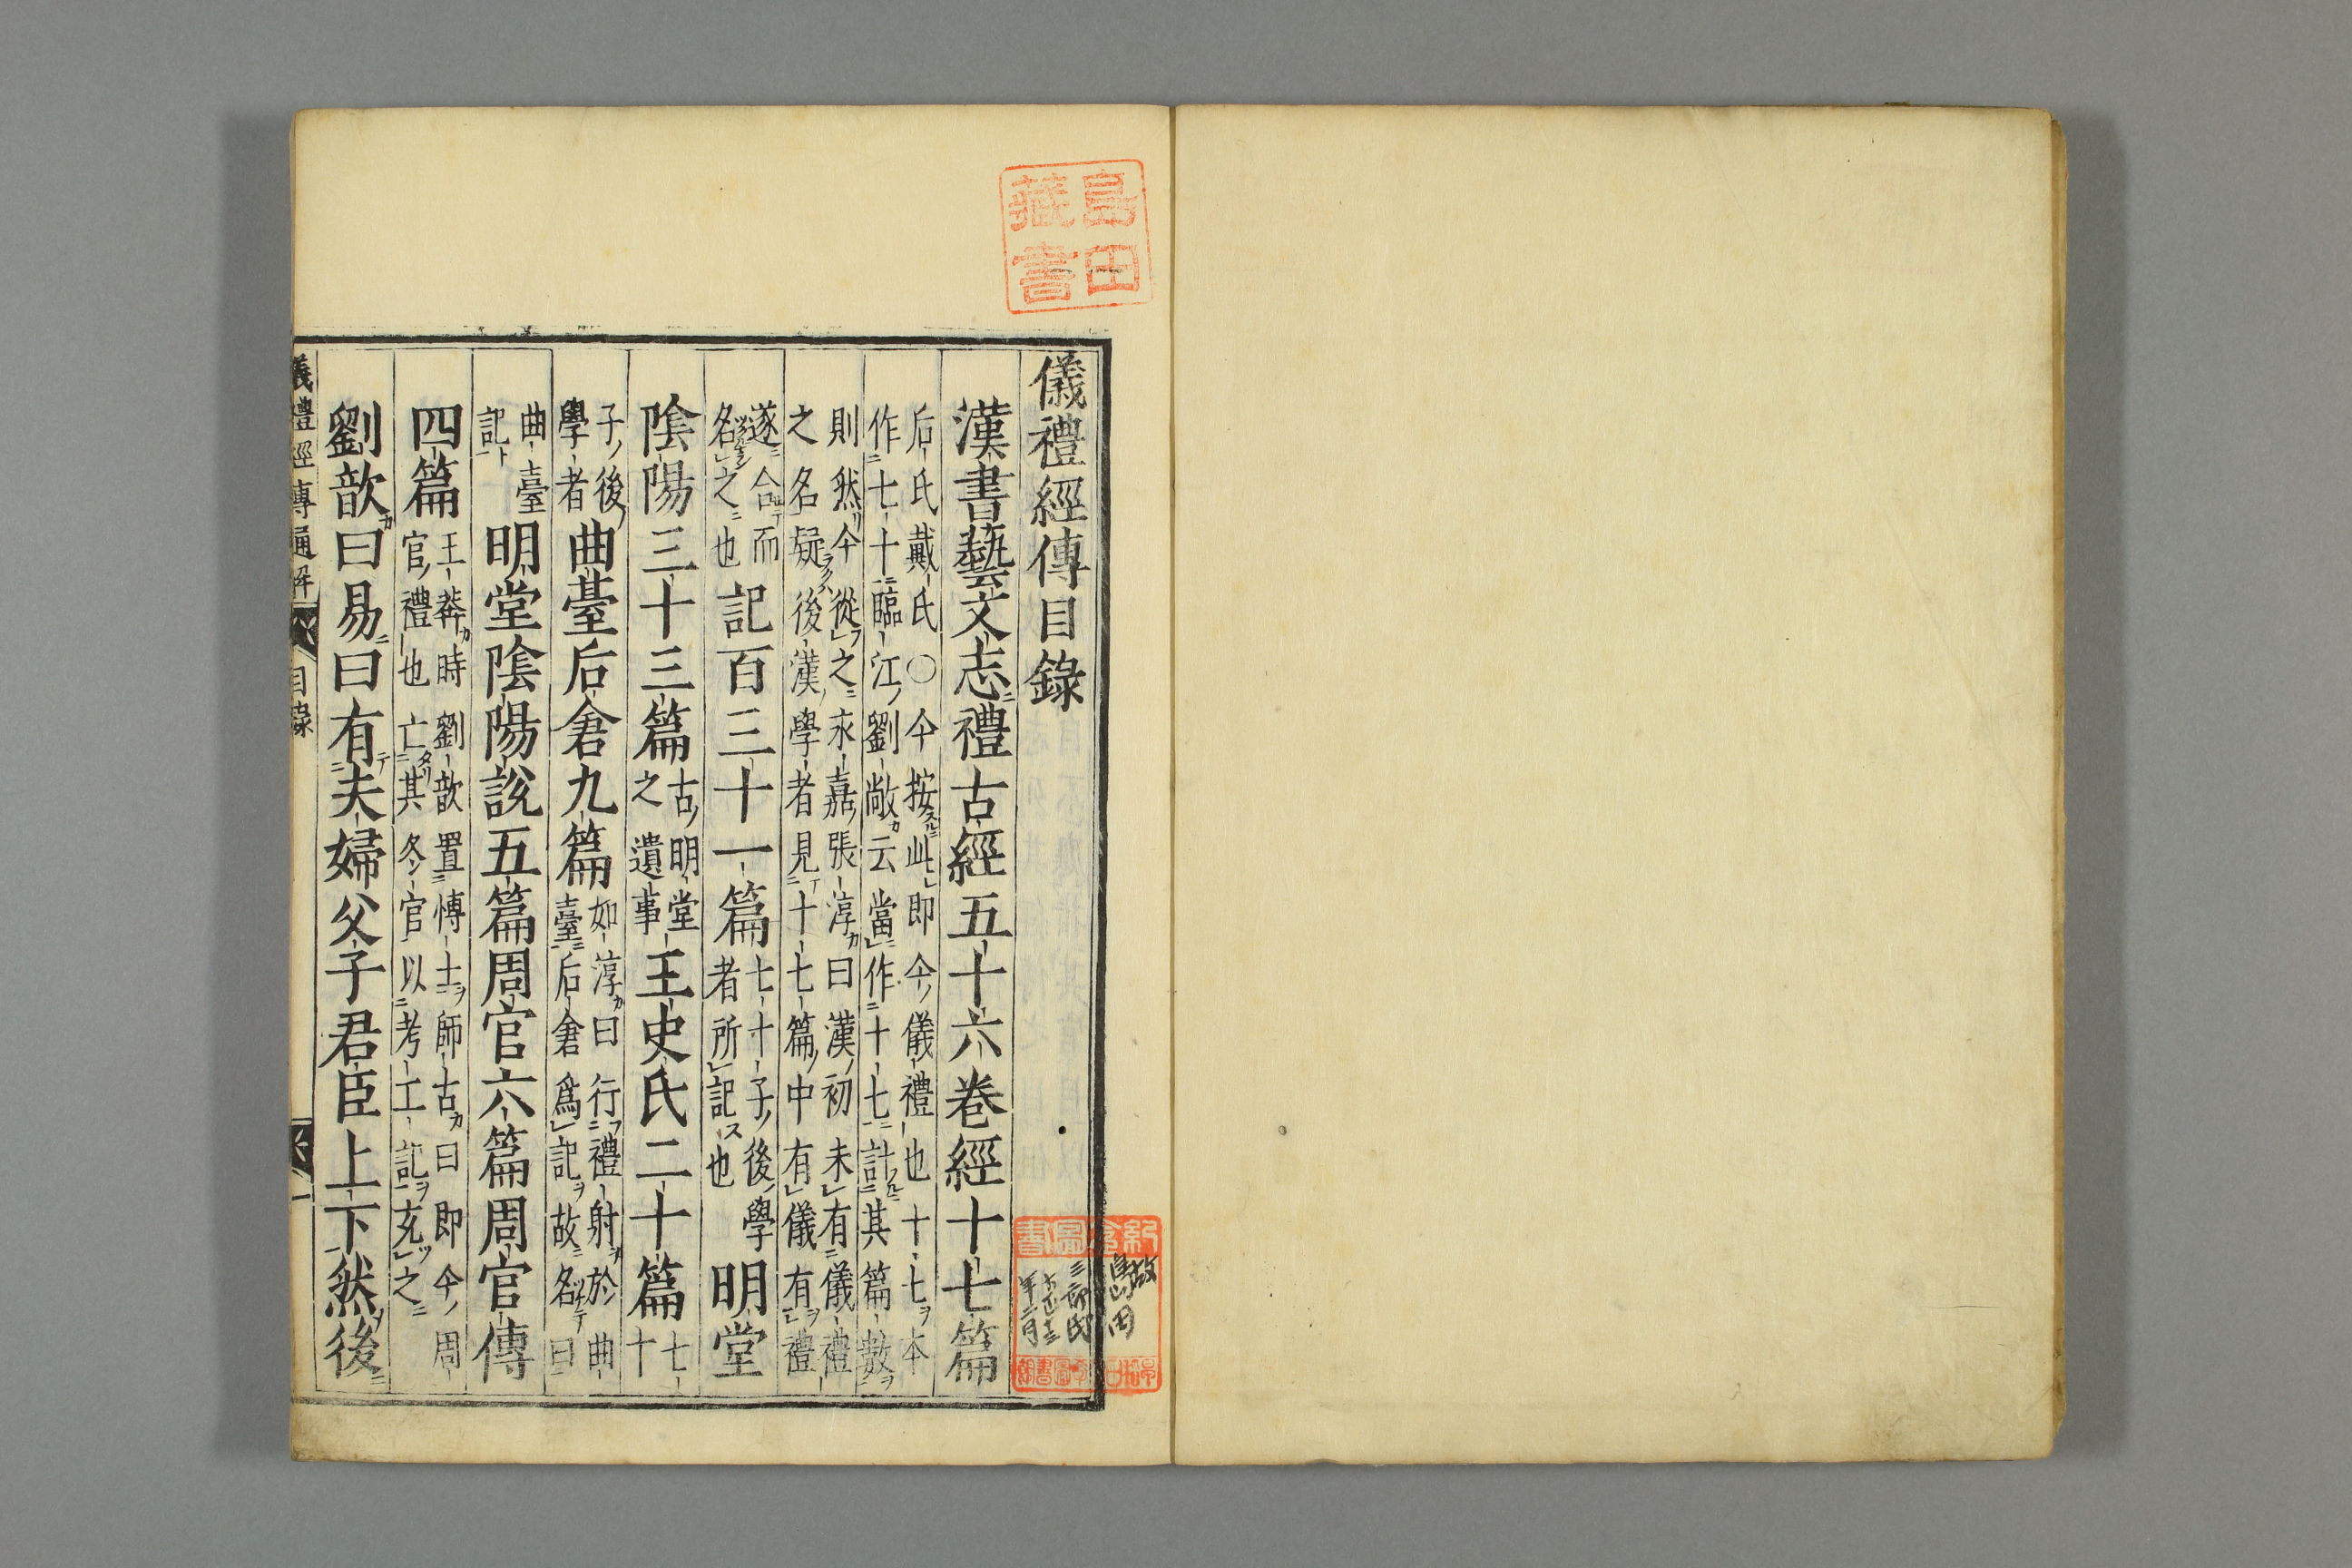 島田
藏書
儀禮經傳目錄
漢書藝文志禮古經五十六卷經十七篇
后氏戴氏○今按此即今儀禮也十七本
作七十臨江劉敞云當作十七計其篇數
則然今從之永嘉張淳曰漢初未有儀禮
之名疑後漢學者見十七篇中有儀有禮
遂合而
名之也
記百三十一篇
七十子後學
者所記也
明堂
陰陽三十三篇
古明堂
之遺事
王史氏二十篇
七
十
子後
學者
曲臺后倉九篇
如淳曰行禮射於曲
臺后倉爲記故名曰
曲臺
記
明堂陰陽說五篇周官六篇周官傳
四篇
王莽時劉歆置博士師古曰即今周
官禮也亡其冬官以考工記充之
劉歆曰易曰有夫婦父子君臣上下然後
儀禮經傳通解
目錄
一
故島田
三郎氏
大正十三
年二月